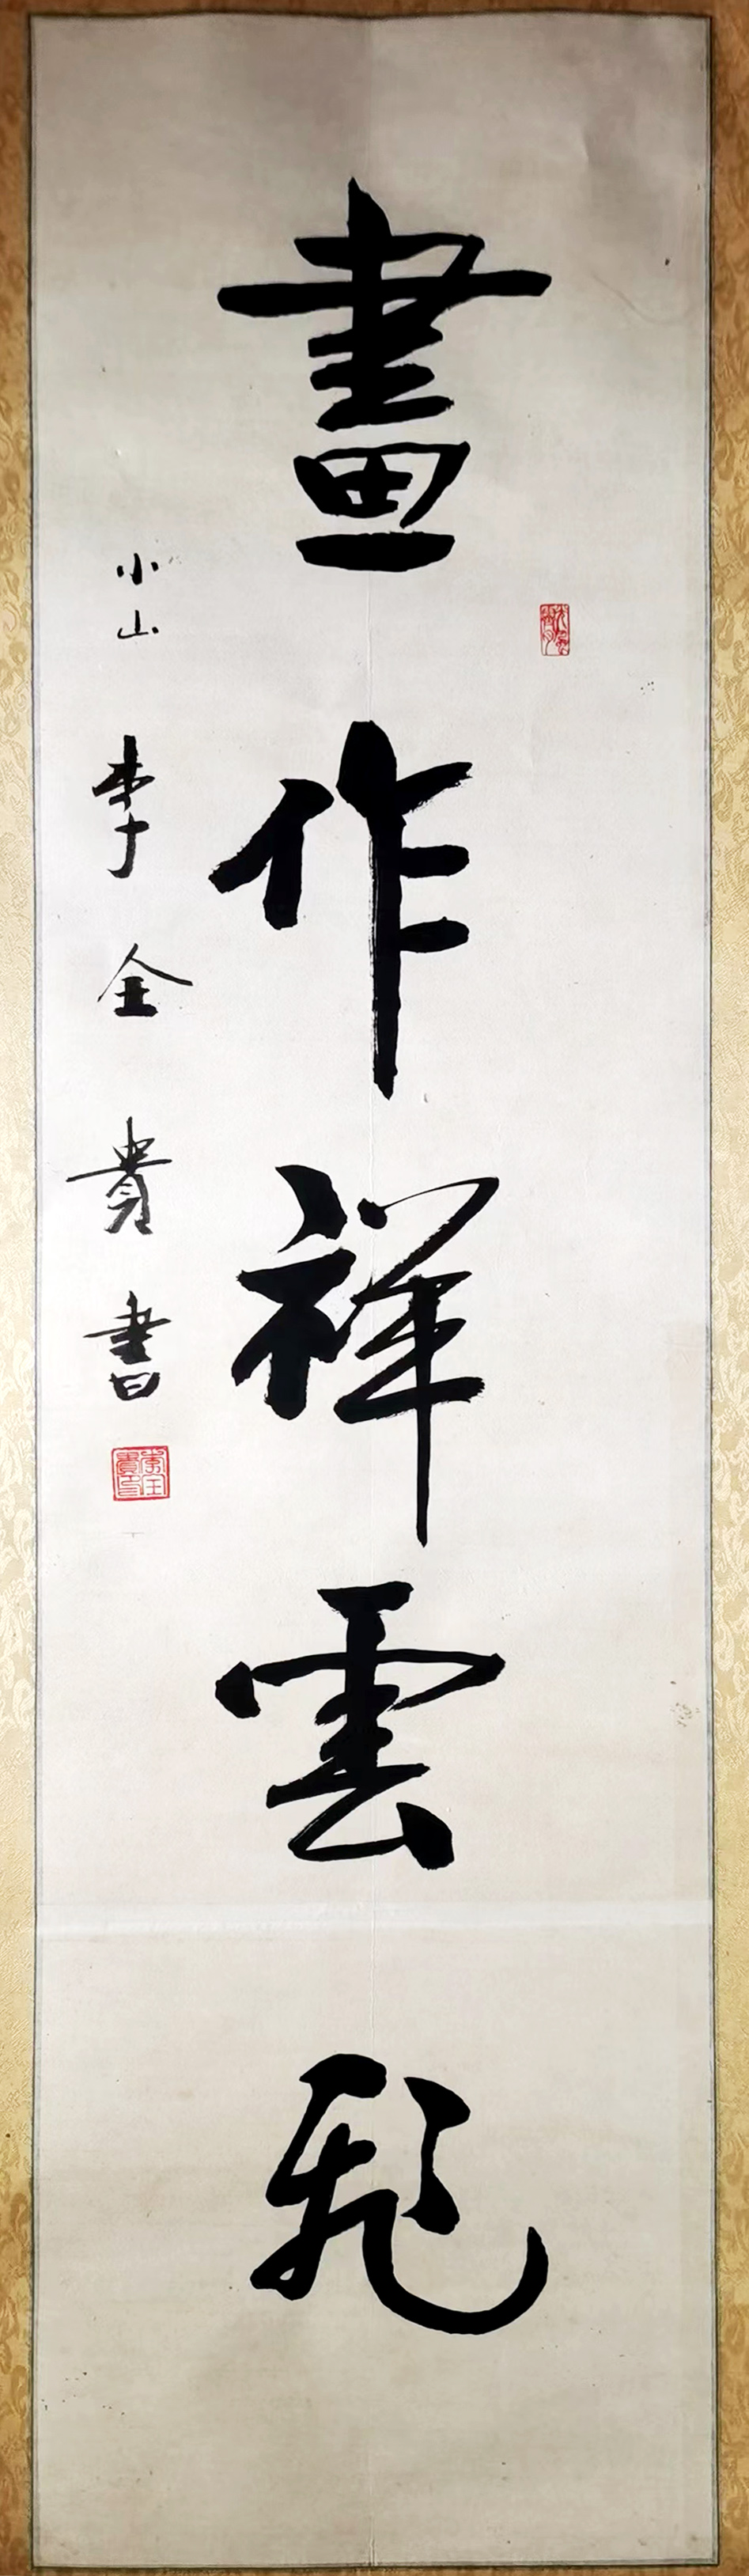 畫作祥雲飛
小山李全貴書